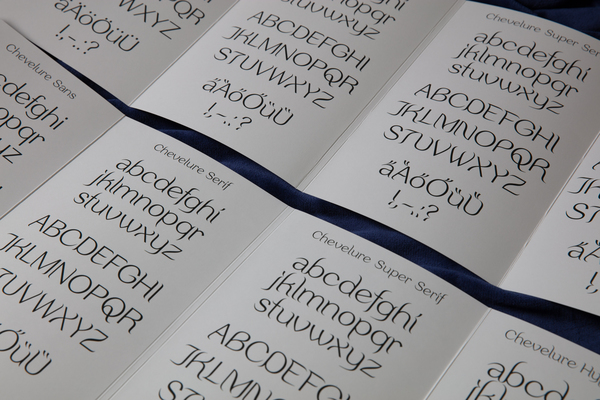 äÄöÖüÜ
!,-.:?
ABCDEFGHI
JKLMNOPQR
STUVWXYZ
äÄöÖüÜ
!,-.:?
Chevelure Super
abcdefghi
jklmnopqr
stuvwxyz
ABCDEFGHI
JKLMNOPQR
STUVWXYZ
äÄöÖüÜ
!,-.:?
Chevelure Sans
Chevelure Serif
abcdefghi
jklmnopqr
stuvwxyz
ABCDEFGHI
JKLMNOPQR
STUVWXYZ
Chevelure Super Serif
abcdefghi
jklmnopqr
stuvwxyz
ABCDEFGHI
JKLMNOPQR
Chevelure
abcd